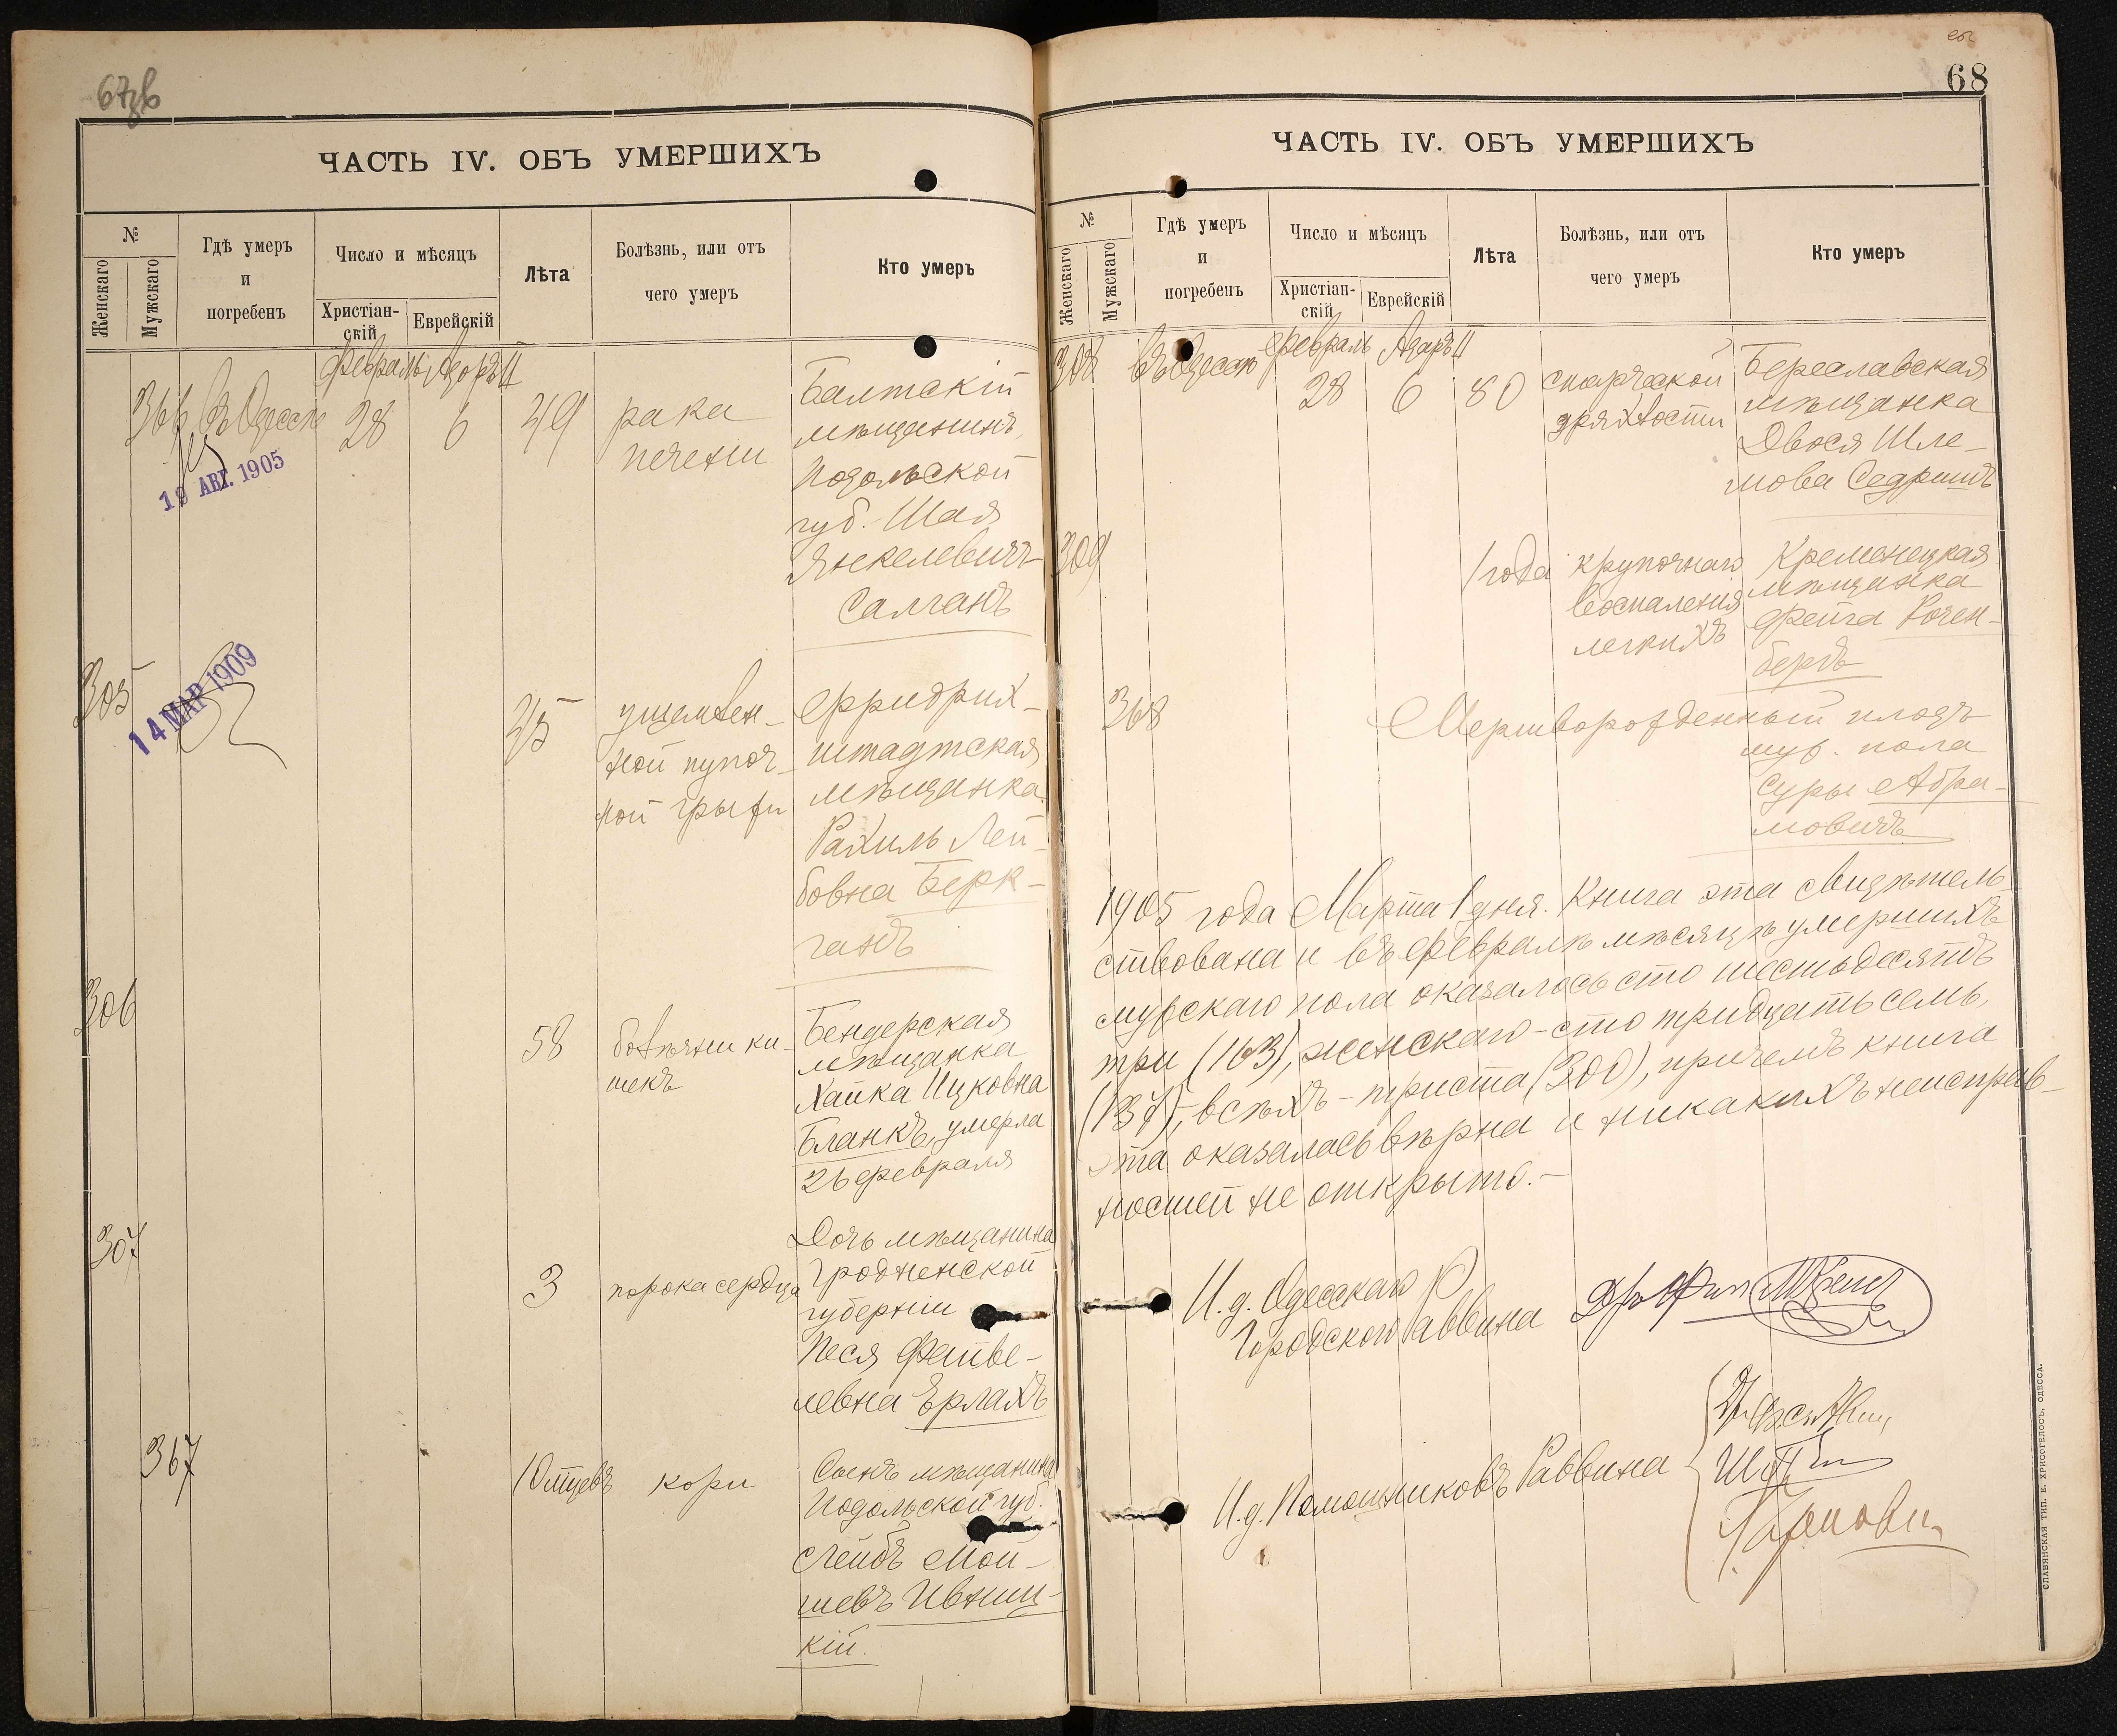 67об
ЧАСТЬ IV. ОБЪ УМЕРШИХЪ
№
Женскаго
Мужскаго
Гдѣ умеръ
и
погребенъ
Число и мѣсяцъ
Христіан-
скій
Еврейскій
Лѣта
Болѣзнь, или отъ
чего умеръ
Кто умеръ
Февраль Адаръ II
366 Въ Одессѣ 28 6 49
рака
печени
Балтскій
мѣщанинъ,
Подольской
губ. Шая
Янкелевичъ
Салганъ
19 АВГ. 1905
305
14 МАР 1909
35
ущемлен-
ной пупоч-
ной грыжи
Фридрих-
штадтская
мѣщанка
Рахиль Лей-
бовна Берк-
ганъ
306
58
болѣзни ки-
шекъ
Бендерская
мѣщанка
Хайка Ицковна
Бланкъ, умерла
26 февраля
307
3
порока сердца
Дочь мѣщанина
Гродненской
губерніи
Песя Файве-
левна Ерлахъ
367
10 мцевъ
кори
Сынъ мѣщанина
Подольской губ.
Лейбъ Мой-
шевъ Ивниц-
кій.
68
ЧАСТЬ IV. ОБЪ УМЕРШИХЪ
№
Женскаго
Мужскаго
Гдѣ умеръ
и
погребенъ
Число и мѣсяцъ
Христіан-
скій
Еврейскій
Лѣта
Болѣзнь, или отъ
чего умеръ
Кто умеръ
Февраль Адаръ II
308 Въ Одессѣ 28 6 80
старческой
дряхлости
Береславская
мѣщанка
Двося Шле-
мова Седришъ
309
1 года
крупочнаго
воспаленія
легкихъ
Кременецкая
мѣщанка
Фейга Розен-
бергъ
368
Мертворожденный плодъ
муж. пола
Суры Абра-
мовичъ
1905 года Марта 1 дня. Книга эта свидѣтель-
ствована и въ Февралѣ мѣсяцѣ умершихъ
мужскаго пола оказалось сто шестьдесятъ
три (163), женскаго - сто тридцать семь,
(137), всѣхъ - триста (300), причемъ книга
эта оказалась вѣрна и никакихъ неисправ-
ностей не открыто. -
И. д. Одесскаго
Городского Раввина
И. д. Помощниковъ Раввина
СЛАВЯНСКАЯ ТИП. Е. ХРИСОГЕЛОСЪ, ОДЕССА.